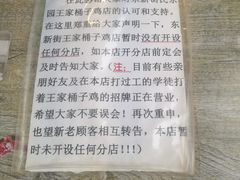 园王家桶子鸡的认可和支持，
在这里郑重给大家声明一下，东
新街王家桶子鸡店暂时没有开设
任何分店，如本店开分店前定会
及时告知大家。（注：目前有些亲
朋好友及在本店打过工的学徒打
着王家桶子鸡的招牌正在营业，
希望大家不要误会！再次重申，
也望新老顾客相互转告，本店暂
时未开设任何分店!!!）